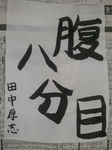 腹八分目
田中厚志